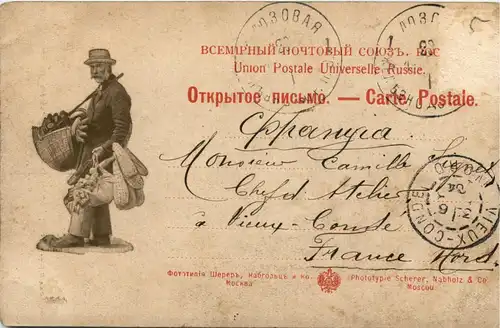 ЛОЗОВАЯ
ВСЕМІРНЫЙ ПОЧТОВЫЙ СОЮЗЪ.
Union Postale Universelle Russie.
Открытое письмо. — Carte Postale.
Франція
Monsieur Camille
Chef d'Atelier
à Vieux-Condé
France Nord
VIEUX-CONDÉ
NORD
Фототипія Шереръ, Набгольцъ и Ко.
Москва
Phototypie Scherer, Nabholz & Co
Moscou